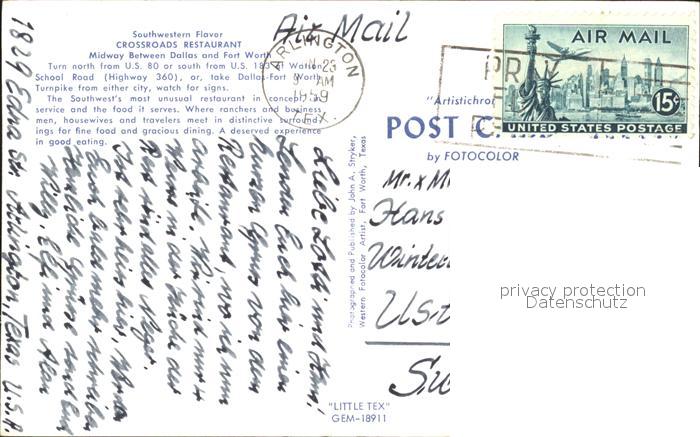 Southwestern Flavor
CROSSROADS RESTAURANT
Midway Between Dallas and Fort Worth
Turn north from U.S. 80 or south from U.S. 183 at Watson
School Road (Highway 360), or, take Dallas-Fort Worth
Turnpike from either city, watch for signs.
The Southwest's most unusual restaurant in concept,
service and the food it serves. Where ranchers and business
men, housewives and travelers meet in distinctive surround-
ings for fine food and gracious dining. A deserved experience
in good eating.
Air Mail
ARLINGTON
23
AM
1959
TEX.
AIR MAIL
15¢
UNITED STATES POSTAGE
PR
"Artistichro
POST C
by FOTOCOLOR
Photographed and Published by John A. Stryker,
Western Fotocolor Artist, Fort Worth, Texas
Mr. x M
Hans
Winte
Ust
Su
privacy protection
Datenschutz
"LITTLE TEX"
GEM-18911
Liebe und Hans,
Senden Euch hier einen
kurzen Gruss von dem
Restaurant, wo ich nun
arbeite.
in der Küche der
Rest sind alles Neger.
Herzliche Grüsse
Willy, und Alan
1829 Edna St. Arlington, Texas U.S.A.